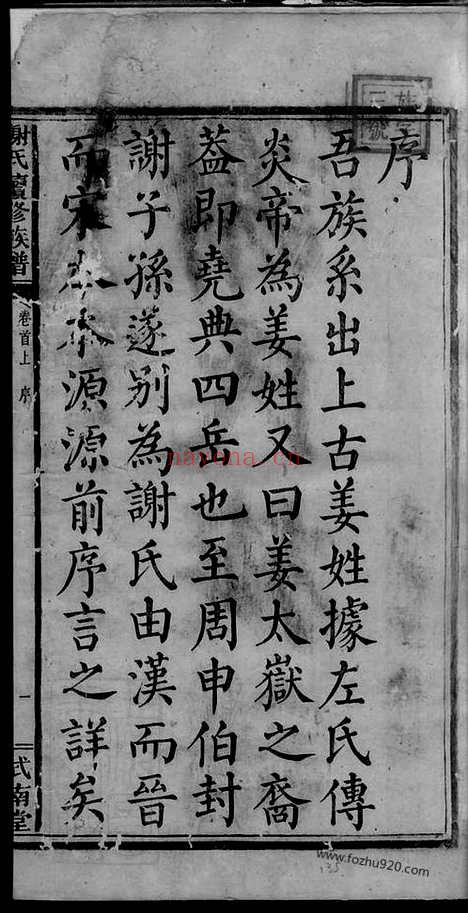 序
吾族系出上古姜姓據左氏傳
炎帝為姜姓又曰姜太嶽之裔
葢即堯典四岳也至周申伯封
謝子孫遂別為謝氏由漢而晉
而宋本本源源前序言之詳矣
謝氏續修族譜
卷首上 序
一
式南堂
nayona.cn
www.fozhu920.com